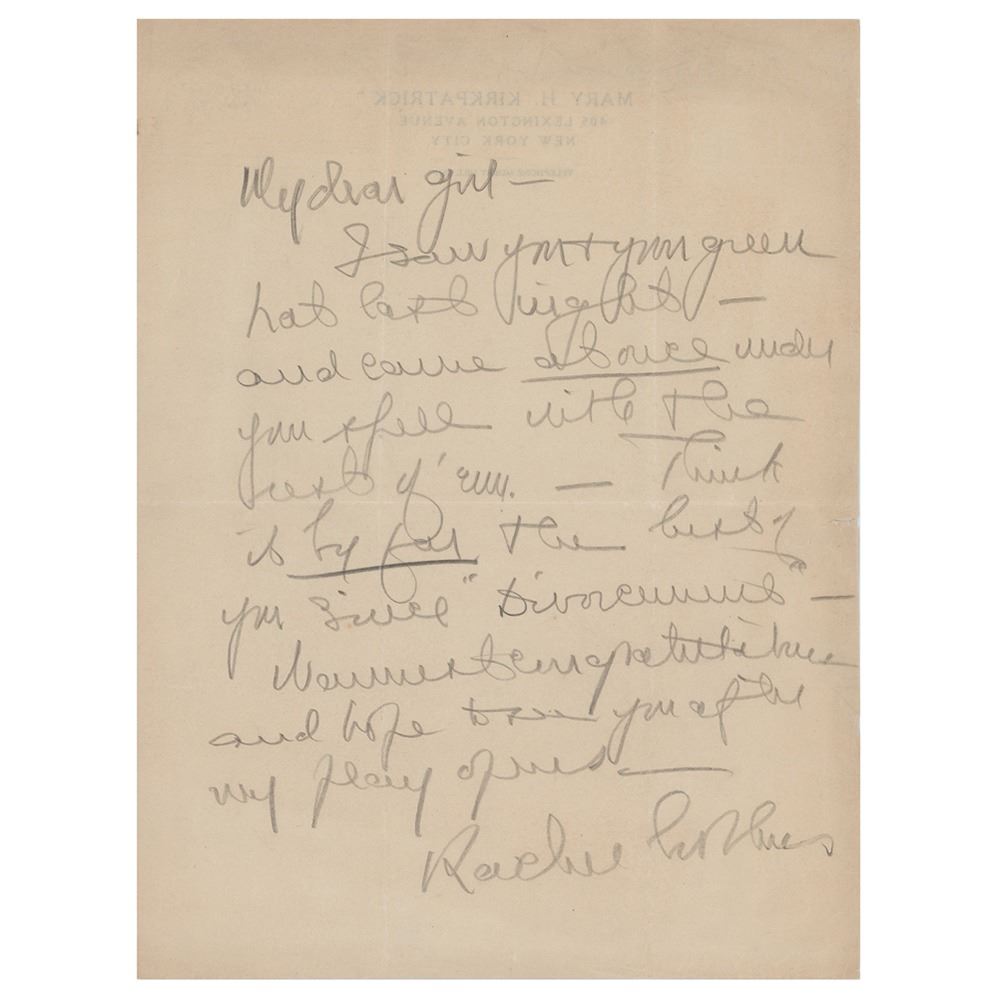 MARY H. KIRKPATRICK
405 LEXINGTON AVENUE
NEW YORK CITY
My dear girl —
I saw you & your green
hat last night —
and came at once under
your spell with the
rest of 'em. — I think
it by far the best of
you since "Divorcement" —
Warmest congratulations
and hope to see you after
my play opens. —
Rachel Crothers